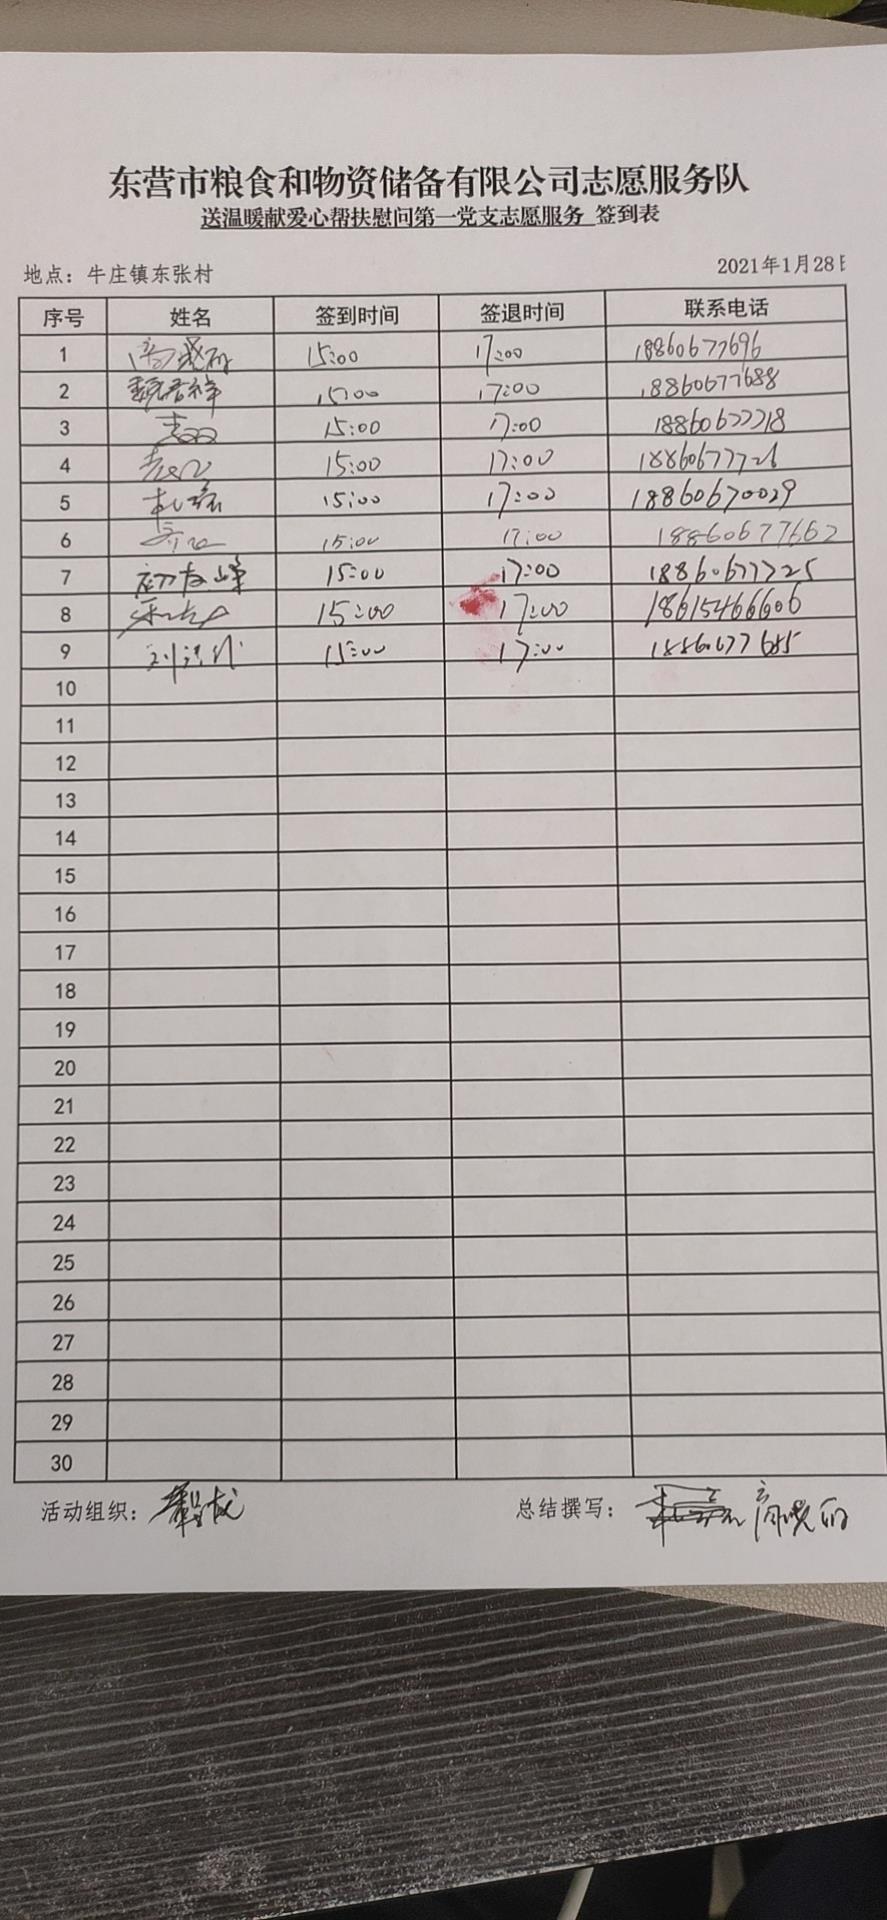 东营市粮食和物资储备有限公司志愿服务队
送温暖献爱心帮扶慰问第一党支志愿服务 签到表
地点：牛庄镇东张村 2021年1月28日
序号 姓名 签到时间 签退时间 联系电话
1 15:00 17:00 18860677696
2 魏春祥 15:00 17:00 18860677688
3 15:00 17:00 18860677718
4 15:00 17:00 18860677726
5 15:00 17:00 18860670029
6 15:00 17:00 18860677662
7 初友峰 15:00 17:00 18860677725
8 15:00 17:00 18615466606
9 15:00 17:00 18860677685
10
11
12
13
14
15
16
17
18
19
20
21
22
23
24
25
26
27
28
29
30
活动组织： 总结撰写：